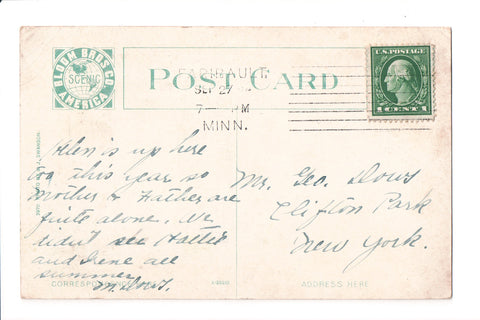 BLOOM BROS CO.
SCENIC
AMERICA
POST CARD
FARIBAULT
SEP 27
7 — PM
MINN.
U.S. POSTAGE
1 CENT 1
Helen is up here
too this year so
Mother & Father are
quite alone. We
didn't see Hattie
and Irene all
summer.
M. Dows.
Mr. Geo. Dows
Clifton Park
New York.
CORRESPONDENCE
ADDRESS HERE